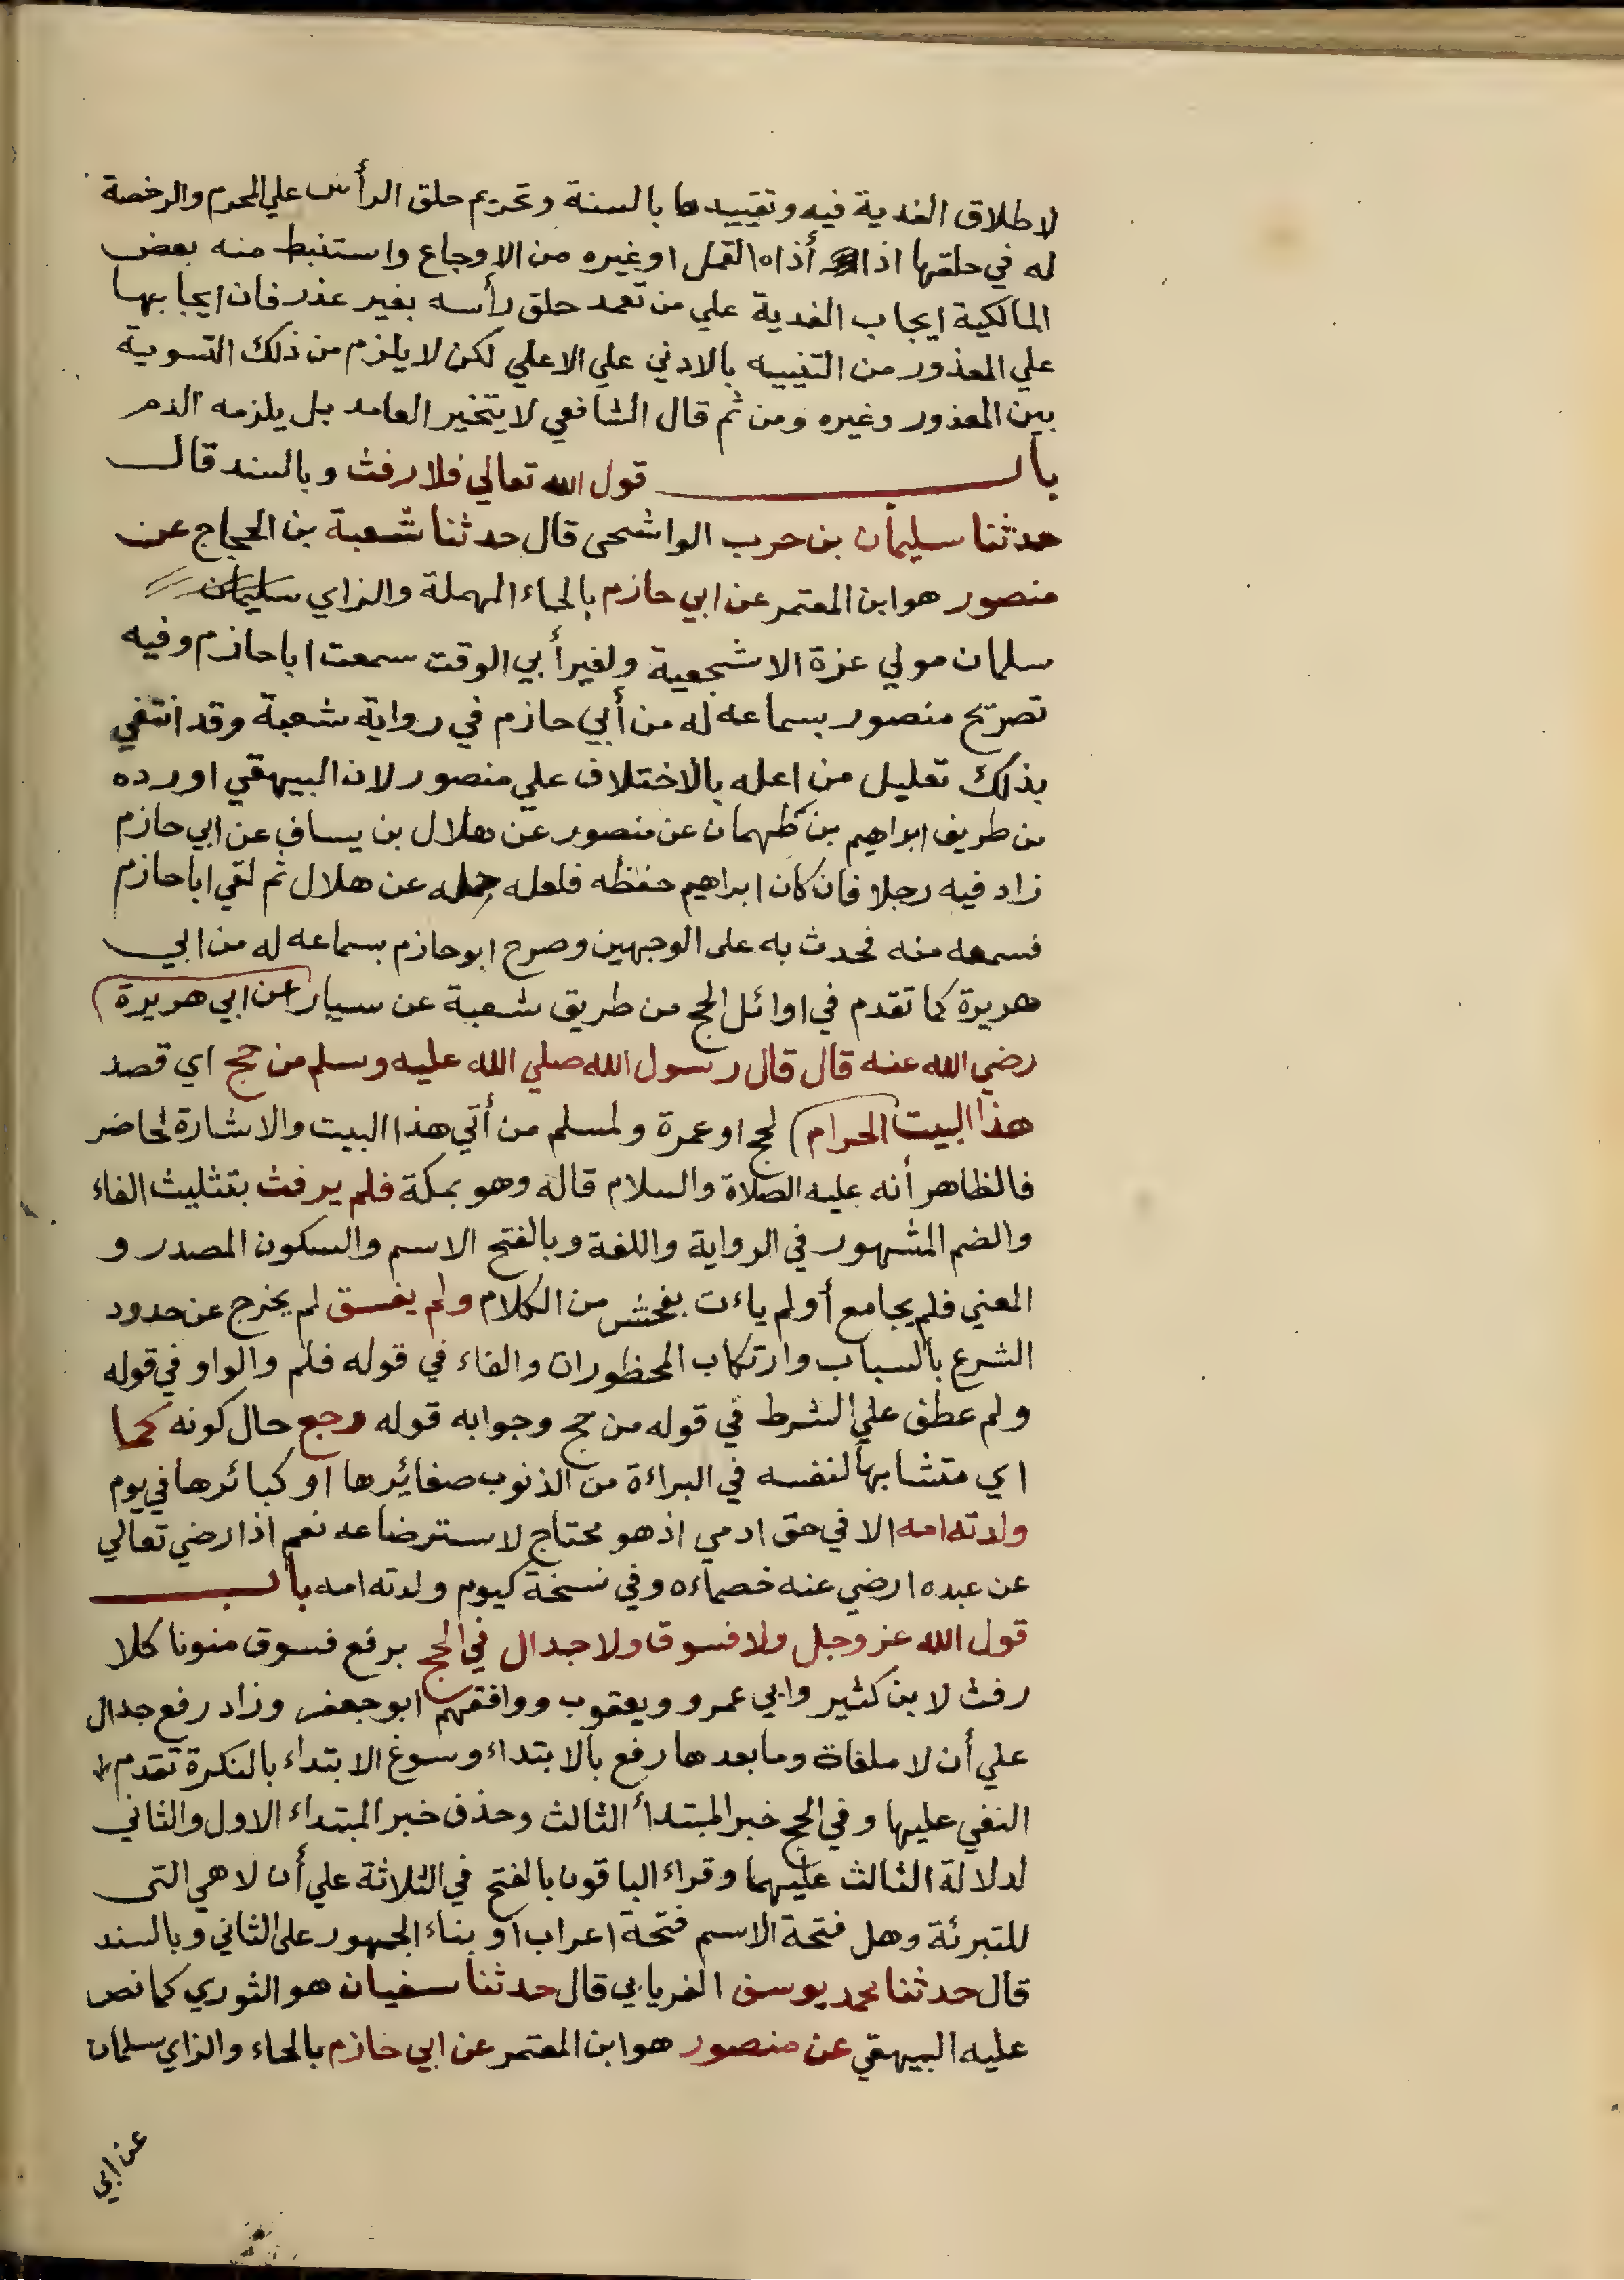 لاطلاق الفدية فيه وتقييدها بالسنة وتحريم حلق الرأس علي المحرم والرخصة
له في حلقها اذا أذاه القمل اوغيره من الاوجاع واستنبط منه بعض
المالكية ايجاب الفدية علي من تعمد حلق رأسه بغير عذر فان ايجابها
علي المعذور من التنبيه بالادني علي الاعلي لكن لا يلزم من ذلك التسوية
بين المعذور وغيره ومن ثم قال الشافعي لا يتخير العامد بل يلزمه الدم
باب قول الله تعالي فلا رفث وبالسند قال
حدثنا سليمان بن حرب الواشحى قال حدثنا شعبة بن الحجاج عن
منصور هو ابن المعتمر عن ابي حازم بالحاء المهملة والزاي سليمان
سلمان مولي عزة الاشجعية ولغير أبي الوقت سمعت ابا حازم وفيه
تصريح منصور بسماعه له من أبي حازم في رواية شعبة وقد انتفي
بذلك تعليل من اعله بالاختلاف علي منصور لان البيهقي اورده
من طريق ابراهيم بن طهمان عن منصور عن هلال بن يساف عن ابي حازم
زاد فيه رجلا فان كان ابراهيم حفظه فلعله حمله عن هلال ثم لقي ابا حازم
فسمعه منه فحدث به على الوجهين وصرح ابو حازم بسماعه له من ابي
هريرة كما تقدم في اوائل الحج من طريق شعبة عن سيار عن ابي هريرة
رضي الله عنه قال قال رسول الله صلي الله عليه وسلم من حج اي قصد
هذا البيت الحرام لحج او عمرة ولمسلم من أتي هذا البيت والاشارة لحاضر
فالظاهر أنه عليه الصلاة والسلام قاله وهو بمكة فلم يرفث بتثليث الفاء
والضم المشهور في الرواية واللغة وبالفتح الاسم والسكون المصدر و
المعني فلم يجامع أو لم ياءت بفحش من الكلام ولم يفسق لم يخرج عن حدود
الشرع بالسباب وارتكاب المحظورات والفاء في قوله فلم والواو في قوله
ولم عطف علي الشرط في قوله من حج وجوابه قوله رجع حال كونه كما
اي متشابها لنفسه في البراءة من الذنوب صغائرها او كبائرها في يوم
ولدته امه الا في حق ادمي اذ هو محتاج لاسترضاعه نعم اذا رضي تعالي
عن عبده ارضي عنه خصماءه وفي نسخة كيوم ولدته امه باب
قول الله عز وجل ولا فسوق ولا جدال في الحج برفع فسوق منونا كلا
رفث لابن كثير وابي عمرو ويعقوب ووافقهم ابو جعفر وزاد رفع جدال
علي أن لا ملغاة وما بعدها رفع بالابتداء وسوغ الابتداء بالنكرة تقدم
النفي عليها وفي الحج خبر المبتدأ الثالث وحذف خبر المبتداء الاول والثاني
لدلالة الثالث عليهما وقراء الباقون بالفتح في الثلاثة علي أن لا هي التى
للتبرئة وهل فتحة الاسم فتحة اعراب او بناء الجمهور على الثاني وبالسند
قال حدثنا محمد يوسف الفريابي قال حدثنا سفيان هو الثوري كما نص
عليه البيهقي عن منصور هو ابن المعتمر عن ابي حازم بالحاء والزاي سلمان
عن ابي